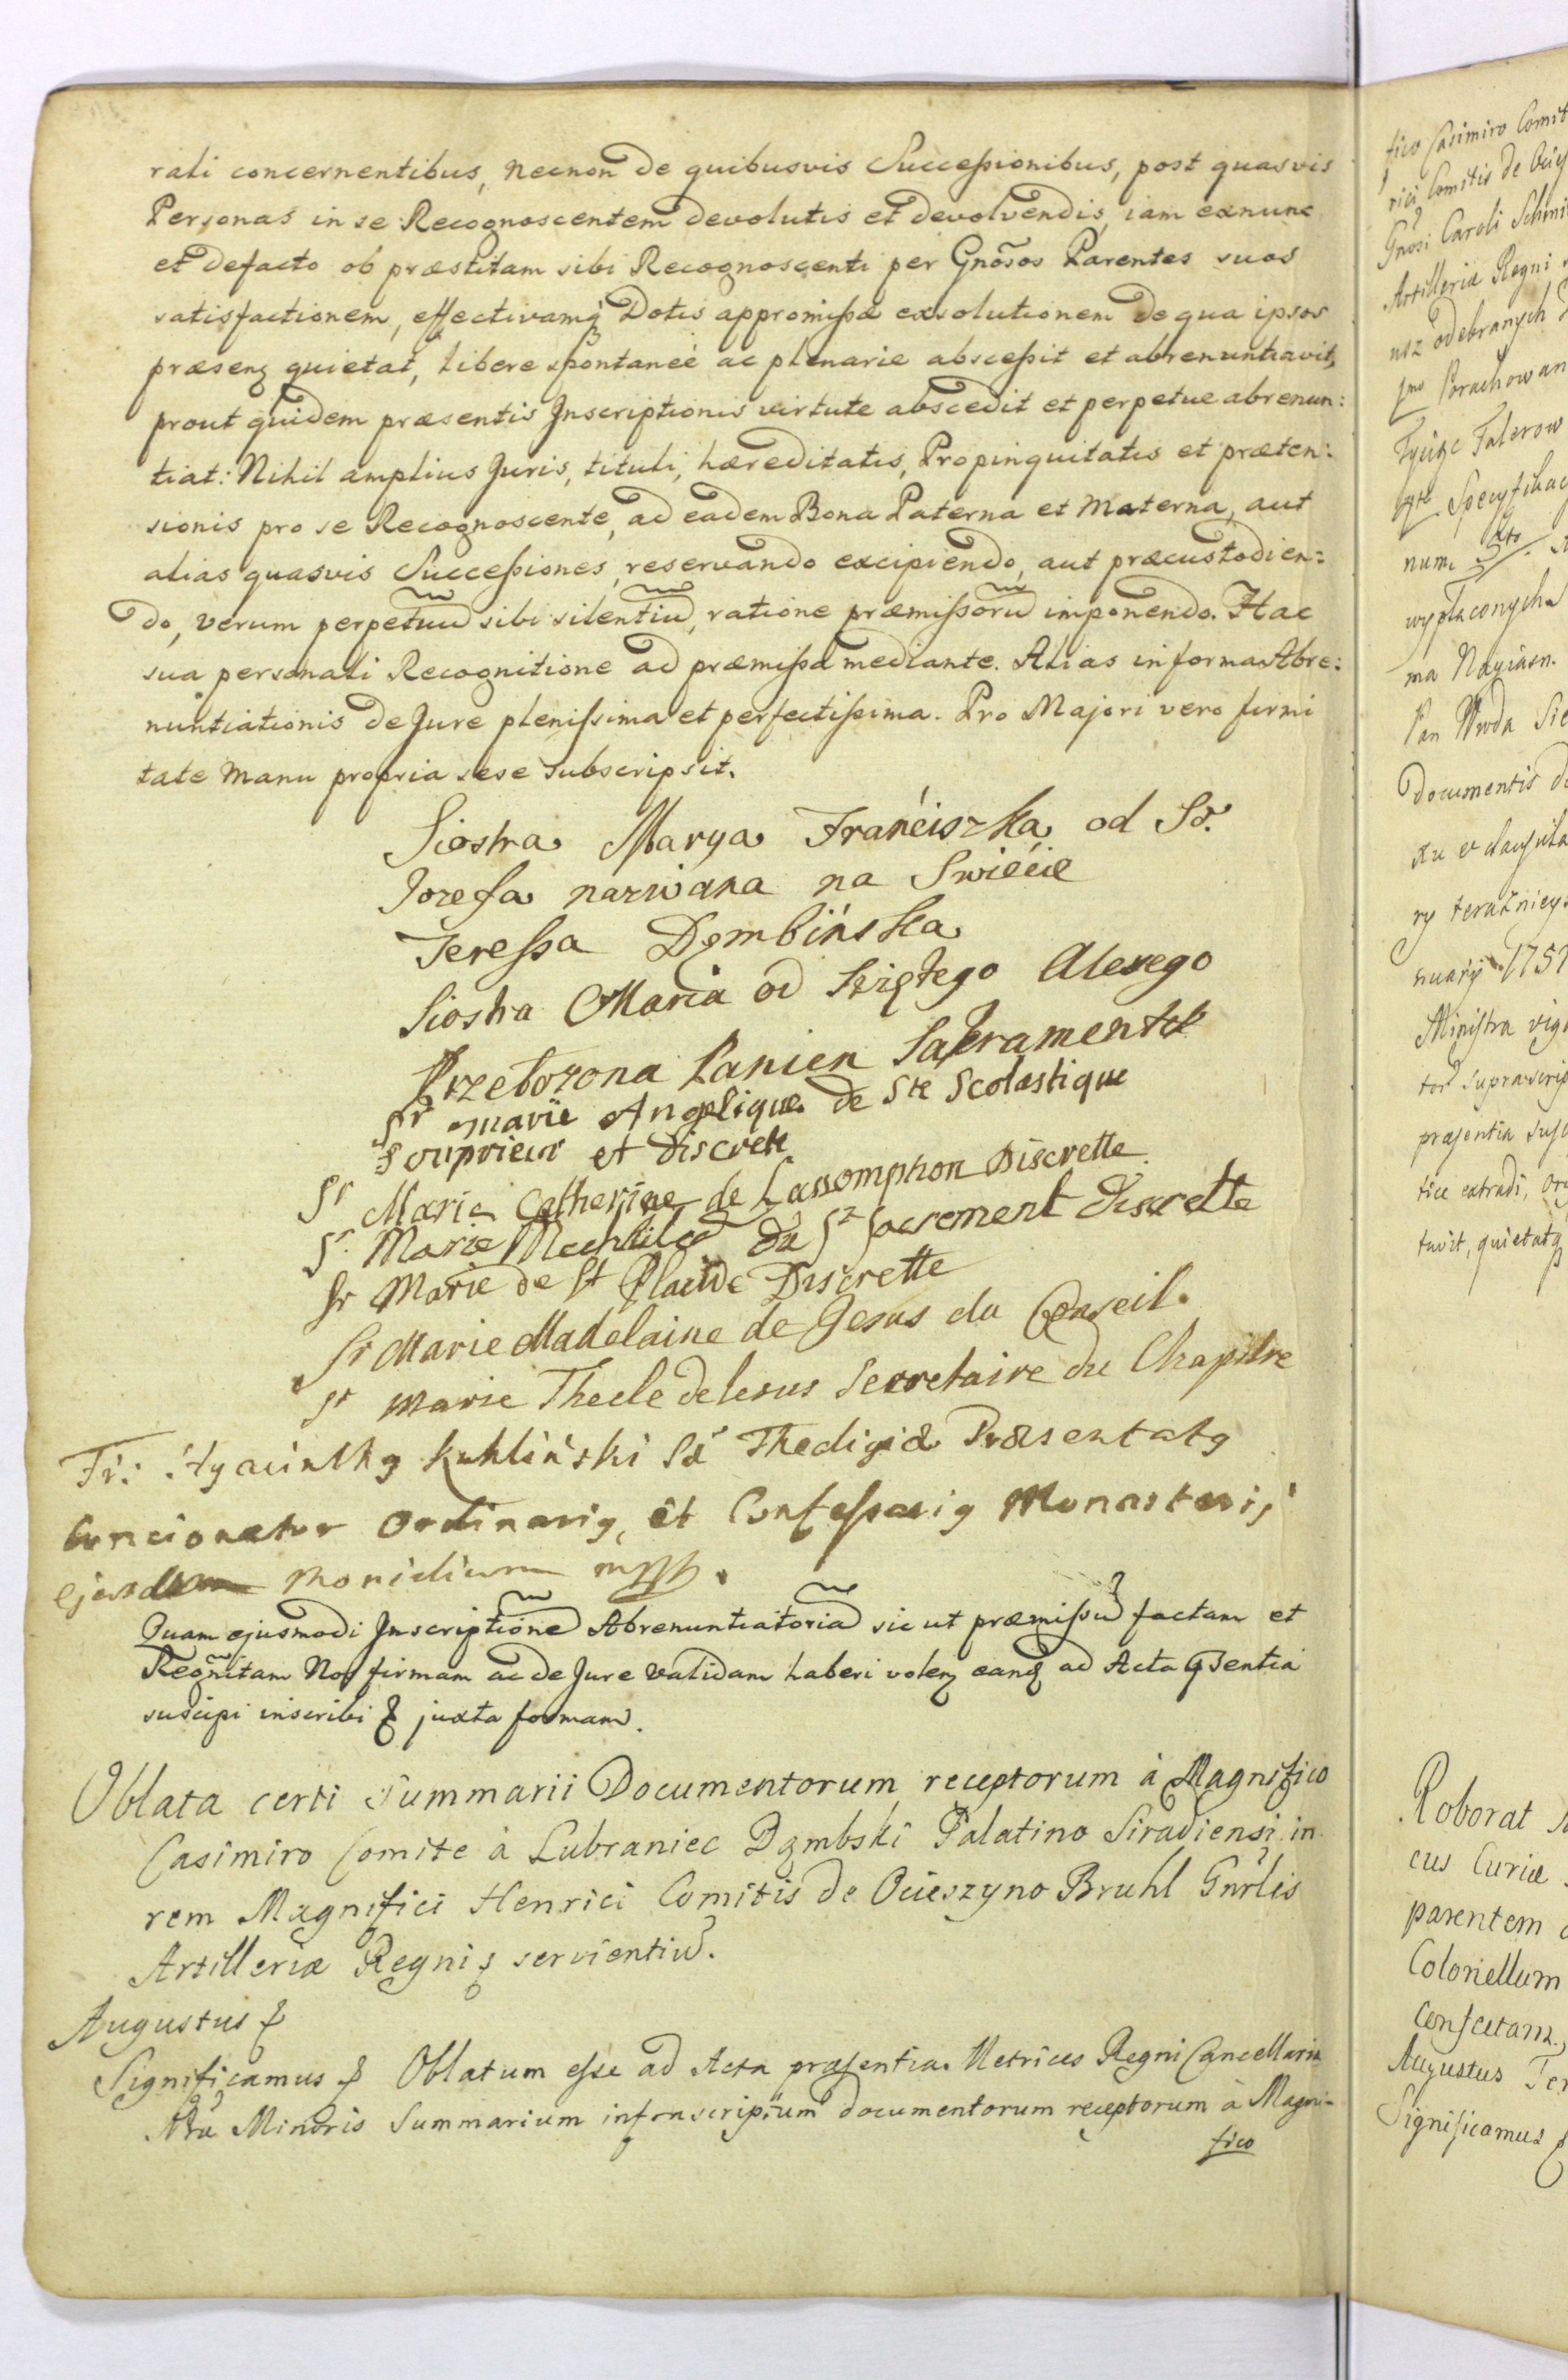 rali concernentibus, necnon de quibusvis Succeßionibus, post quasvis
Personas in se Recognoscentem devolutis et devolvendis, iam exnunc
et defacto ob præstitam sibi Recognoscenti per Gnõsos Parentes suos
satisfactionem, effectivamq Dotis appromißæ exsolutionem de qua ipsos
præsenz quietat, libere spontaneè ac plenarie absceßit et abrenuntiavit,
prout quidem præsentis Inscriptionis virtute abscedit et perpetue abrenun:
tiat: Nihil amplius Juris, tituli, hæreditatis, Propinquitatis et præten:
sionis pro se Recognoscente, ad eadem Bona Paterna et Materna, aut
alias quasvis Succeßiones, reservando excipiendo, aut præcustodien:
do, verum perpetuũ sibi silentiũ, ratione præmißorũ imponendo. Hac
sua personali Recognitione ad præmißa mediante. Alias in forma Abre:
nuntiationis de Jure plenißima et perfectißima. Pro Majori vero firmi
tate Manu propria sese subscripsit.
Siostra Marya Franćiszka od Sº.
Jozefa nazwana na Swiećie
Tereßa Dembińska
Siostra Maria od Swiętego Alexego
Przełożona Panien Sakramentek
Sr marie Angelique de Ste Scolastique
Souprieur et Discrete
Sr Marie Catherine de Lassomption Discrette
Sr. Marie Mechtilde du St Sacrement Discrette
Sr Marie de St Placide Discrette
Sr Marie Madelaine de Jesus du Conseil.
Sr marie Thecle de Iesus Secretaire du Chapitre
Fr: Hyacinthg Kuhliński Sæ Præsentatg
Concionator Ordinarig, et Confeßarig Monasterij
ejusdem monidium mpp.
Quam ejusmodi Inscriptionẽ Abrenuntiatoriã sic ut præmißũ factam et
Regnitam Nos firmam ac de Jure validam haberi volenz eandz ad Acta pñsentia
suscipi inscribi & juxta formam.
Oblata certi Summarii Documentorum receptorum à Magnifico
Casimiro Comite à Lubraniec Dąmbski Palatino Siradiensi in
rem Magnifici Henrici Comitis de Ocieszyno Bruhl Gnrlis
Artilleriæ Regni & servientiũ.
Augustus &
Significamus & Oblatum eße ad Acta præsentia Metrices Regni Cancellariæ
Nræ Minoris Summarium infrascriptum documentorum receptorum à Magni-
fico
fico Casimiro Comit
rici Comitis de Ocies
Gnosi Caroli Schmi
Artilleriæ Regni
usz odebranych
Imo Porachowan
Tyiąc Talerow
Specyfikac
num 3tio
wypłaconych
ma Nayiasn.
Pan Wwda Sie
Documentis de
ry teraźniey
nuarij 1757
Ministra vig
tos suprascrip
præsentia susc
tice extradi, ori
tavit, quietatq
Roborat
cus Curiæ
parentem
Colonellum
Augustus Ter
Significamus &